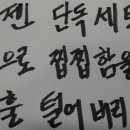 젠 단독 세트
으로 찝찝함을
훌 털어 버리